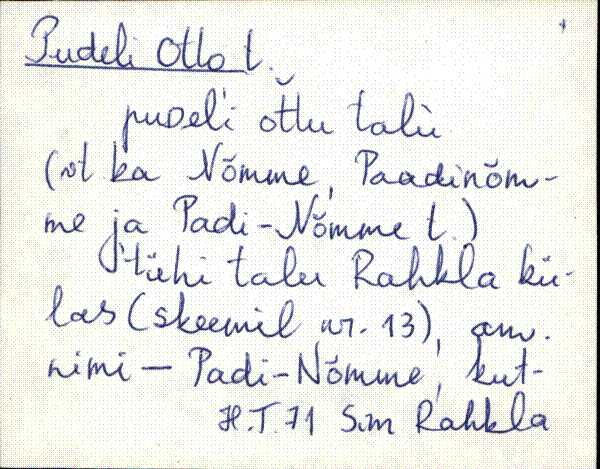 Pudeli Otto t.
puᴅeĺi ŏt̆tu talù
(vt ka Nõmme, Paadinõm-
me ja Padi-Nõmme t.)
Tühi talu Rahkla kü-
las (skeemil nr. 13), am.
nimi — Padi-Nõmme, kut-
H.T. 71 Sim Rahkla